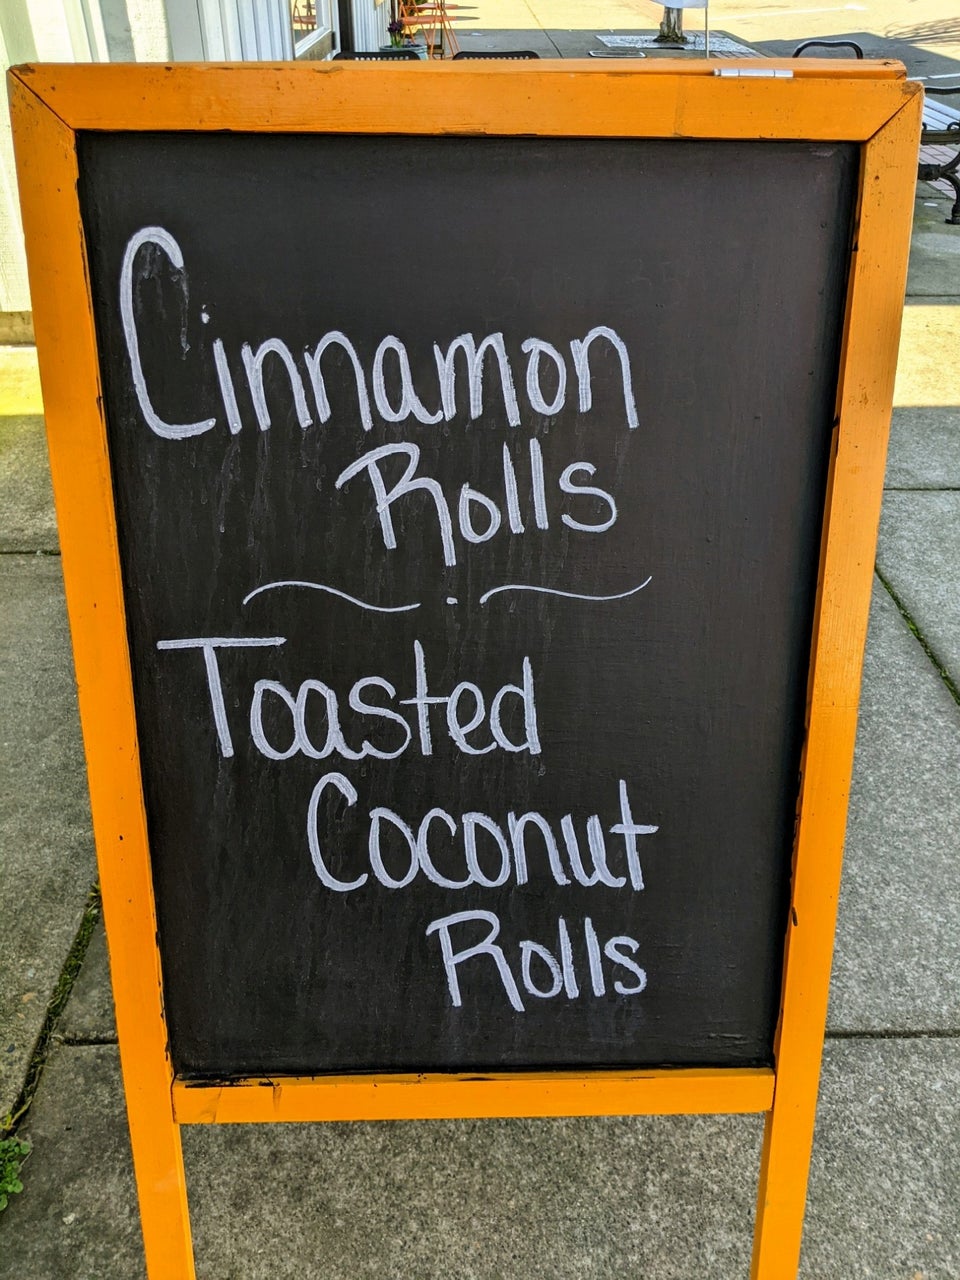 Cinnamon
Rolls
Toasted
Coconut
Rolls